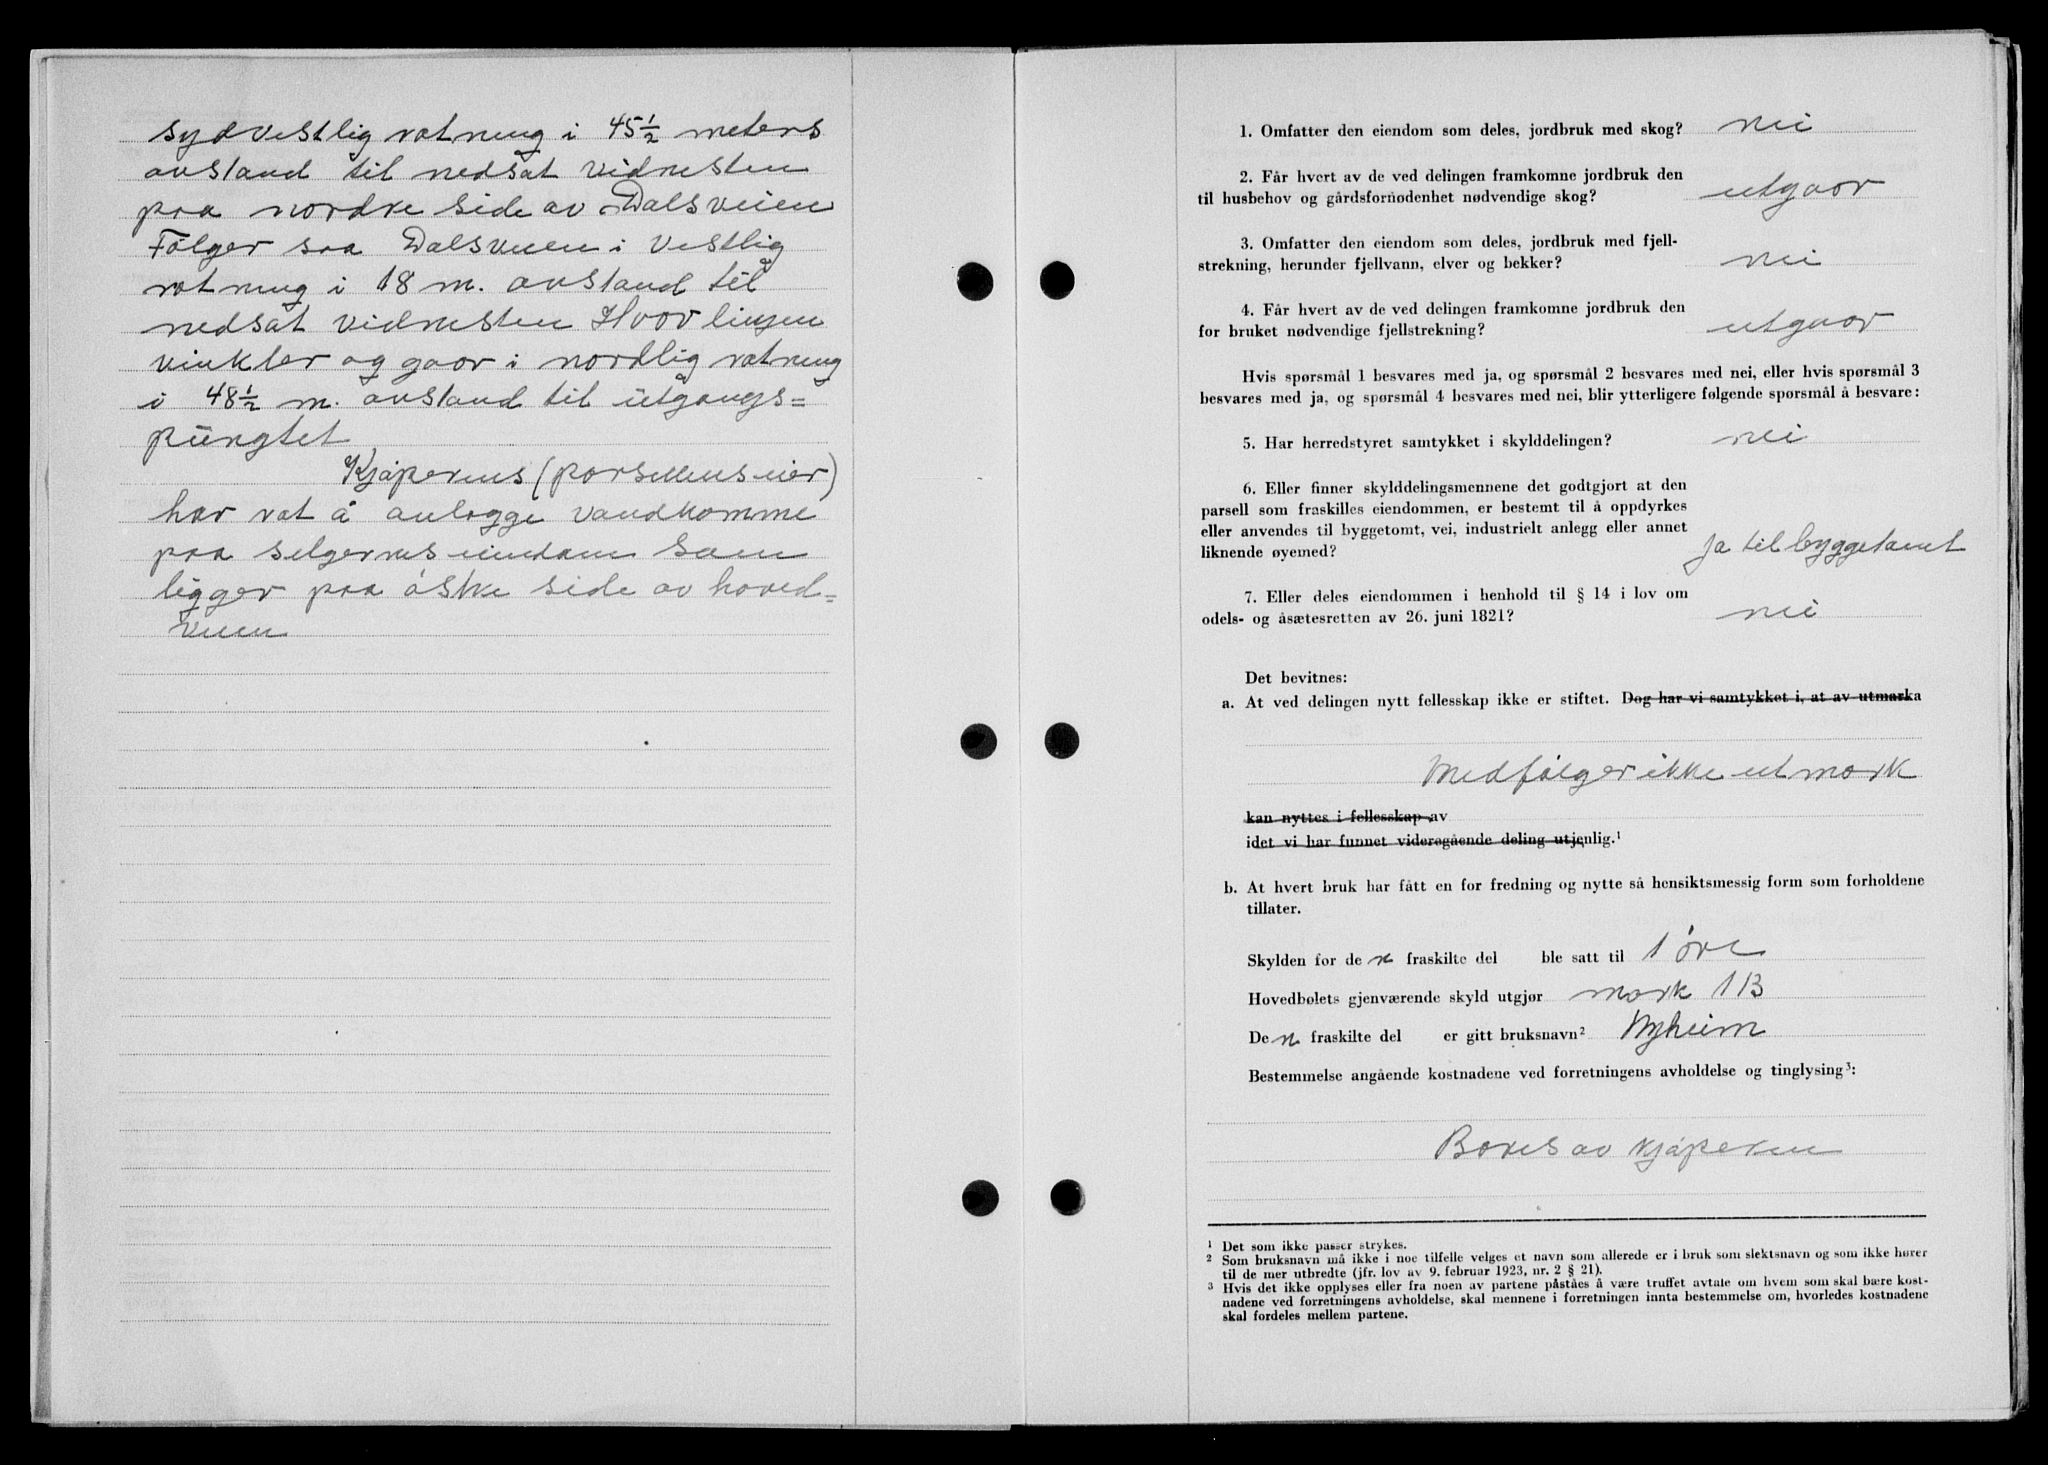 sydvestlig retning i 45 1/2 meters
avstand til nedsat vidnesten
paa nordre side av Dalsveien
Følger saa Dalsveien i vestlig
retning i 18 m. avstand til
nedsat vidnesten Hvor linjen
vinkler og gaar i nordlig retning
i 48 1/2 m. avstand til utgangs=
pungtet
Kjøperens (parsellens eier)
har ret å anlegge vandkomme
paa selgernes eiendom som
ligger paa østre side av hoved=
veien
1. Omfatter den eiendom som deles, jordbruk med skog? nei
2. Får hvert av de ved delingen framkomne jordbruk den
til husbehov og gårdsfornødenhet nødvendige skog? utgaar
3. Omfatter den eiendom som deles, jordbruk med fjell-
strekning, herunder fjellvann, elver og bekker? nei
4. Får hvert av de ved delingen framkomne jordbruk den
for bruket nødvendige fjellstrekning? utgaar
Hvis spørsmål 1 besvares med ja, og spørsmål 2 besvares med nei, eller hvis spørsmål 3
besvares med ja, og spørsmål 4 besvares med nei, blir ytterligere følgende spørsmål å besvare:
5. Har herredstyret samtykket i skylddelingen? nei
6. Eller finner skylddelingsmennene det godtgjort at den
parsell som fraskilles eiendommen, er bestemt til å oppdyrkes
eller anvendes til byggetomt, vei, industrielt anlegg eller annet
liknende øyemed? Ja til byggetomt
7. Eller deles eiendommen i henhold til § 14 i lov om
odels- og åsætesretten av 26. juni 1821? nei
Det bevitnes:
a. At ved delingen nytt fellesskap ikke er stiftet. Dog har vi samtykket i, at av utmarka
Medfølger ikke utmark
kan nyttes i fellesskap av
idet vi har funnet videregående deling utjenlig.¹
b. At hvert bruk har fått en for fredning og nytte så hensiktsmessig form som forholdene
tillater.
Skylden for de n fraskilte del ble satt til 1 øre
Hovedbølets gjenværende skyld utgjør mark 1 13
De n fraskilte del er gitt bruksnavn² Nyheim
Bestemmelse angående kostnadene ved forretningens avholdelse og tinglysing³:
Bæres av kjøperen
¹ Det som ikke passer strykes.
² Som bruksnavn må ikke i noe tilfelle velges et navn som allerede er i bruk som slektsnavn og som ikke hører
til de mer utbredte (jfr. lov av 9. februar 1923, nr. 2 § 21).
³ Hvis det ikke opplyses eller fra noen av partene påståes å være truffet avtale om hvem som skal bære kost-
nadene ved forretningens avholdelse, skal mennene i forretningen innta bestemmelse om, hvorledes kostnadene
skal fordeles mellem partene.